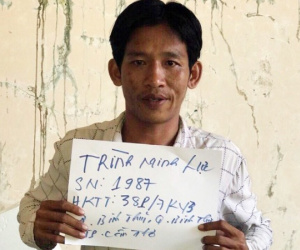 Trình minh
SN: 1987
HKTT: 38P/7KVB
P. Bình Thủy, Q. Bình Thủy
TP. Cần Thơ